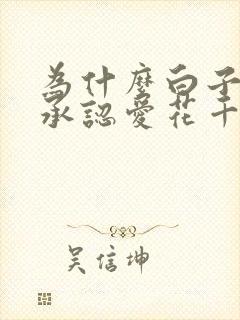 為什麼白子
承認愛花千
吳信坤